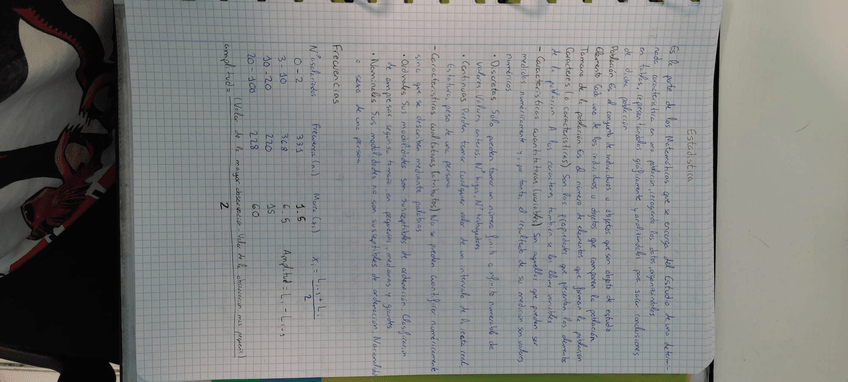 Estadística
Es la parte de las Matemáticas que se encarga del estudio de una determi-
nada característica en una población, recogiendo los datos, organizándolos
en tablas, representándolos gráficamente y analizándolos para sacar conclusiones
de dicha población.
Población Es el conjunto de individuos u objetos que son objeto de estudio
Elemento Cada uno de los individuos u objetos que componen la población
Tamaño de la población Es el número de elementos que forman la población
Caracteres (o características) Son las propiedades que presentan los elementos
de la población. A los caracteres también se les llama variables
- Características cuantitativas (variables) Son aquellas que pueden ser
medidas numéricamente y, por tanto, el resultado de su medición son valores
numéricos
• Discretas Solo pueden tomar un número finito o infinito numerable de
valores. Valores enteros. Nº hijos, Nº trabajadores
• Continuas Pueden tomar cualquier valor de un intervalo de la recta real.
Estatura, peso de una persona
- Características cualitativas (atributos) No se pueden cuantificar numéricamente
sino que se describen mediante palabras
• Ordinales Sus modalidades son susceptibles de ordenación. Clasificación
de empresas según su tamaño en pequeñas, medianas y grandes
• Nominales Sus modalidades no son susceptibles de ordenación. Nacionalidad
o sexo de una persona
Frecuencias
Nº Frecuencia (ni) Marca (xi) xi = Li-1 + Li / 2
0 - 2 331 1.5
3 - 10 368 6.5 Amplitud = Li - Li-1
10 - 20 220 15
20 - 100 228 60
amplitud = (Valor de la mayor observación - Valor de la observación más pequeña)
2